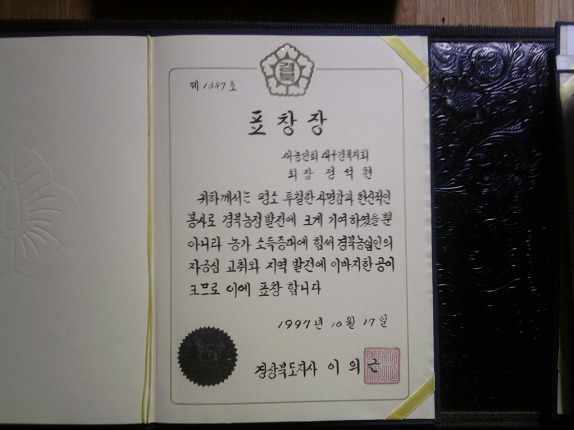 제 1387 호
표창장
새농민회 대구경북지회
회장 정석현
귀하께서는 평소 투철한 사명감과 헌신적인
봉사로 경북농정발전에 크게 기여하였을뿐
아니라 농가 소득증대에 힘써 경북농업인의
자긍심 고취와 지역 발전에 이바지한 공이
크므로 이에 표창 합니다
1997년 10월 17일
경상북도지사 이의근